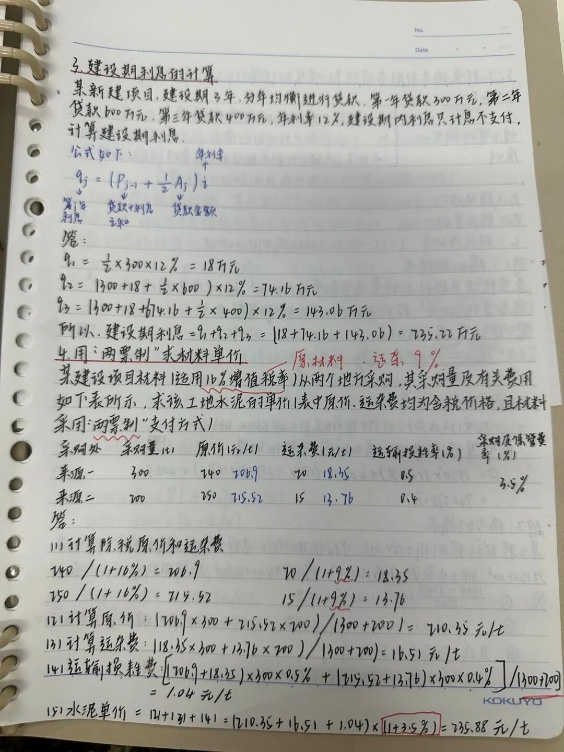 No.
Date
3. 建设期利息的计算
某新建项目,建设期3年,分年均衡进行贷款,第一年贷款300万元,第二年
贷款600万元,第三年贷款400万元,年利率12%,建设期内利息只计息不支付,
计算建设期利息.
公式如下: 年利率
qj = (Pj-1 + 1/2 Aj) i
第j年利息 贷款+利息之和 贷款金额
答:
q1 = 1/2×300×12% = 18万元
q2 = (300+18+1/2×600)×12% = 74.16万元
q3 = (300+18+674.16+1/2×400)×12% = 143.06万元
所以,建设期利息=q1+q2+q3 = (18+74.16+143.06) = 235.22万元
4. 用“两票制”求材料单价 原材料 运杂 9%
某建设项目材料(适用16%增值税率)从两个地方采购,其采购量及有关费用
如下表所示,求该工地水泥的单价(表中原价、运杂费均为含税价格,且材料
采用“两票制”支付方式)
采购处 采购量(t) 原价(元/t) 运杂费(元/t) 运输损耗率(%) 采购及保管费率(%)
来源一 300 240 206.9 20 18.35 0.5 3.5%
来源二 200 250 215.52 15 13.76 0.4
答:
(1) 计算除税原价和运杂费
240/(1+16%) = 206.9 20/(1+9%) = 18.35
250/(1+16%) = 215.52 15/(1+9%) = 13.76
(2) 计算原价: (206.9×300+215.52×200)/(300+200) = 210.35 元/t
(3) 计算运杂费: (18.35×300+13.76×200)/(300+200) = 16.51 元/t
(4) 运输损耗费: [(206.9+18.35)×300×0.5% + (215.52+13.76)×300×0.4%]/(300+200)
= 1.04 元/t
KOKUYO
(5) 水泥单价 = (2)+(3)+(4) = (210.35+16.51+1.04)×(1+3.5%) = 235.88 元/t